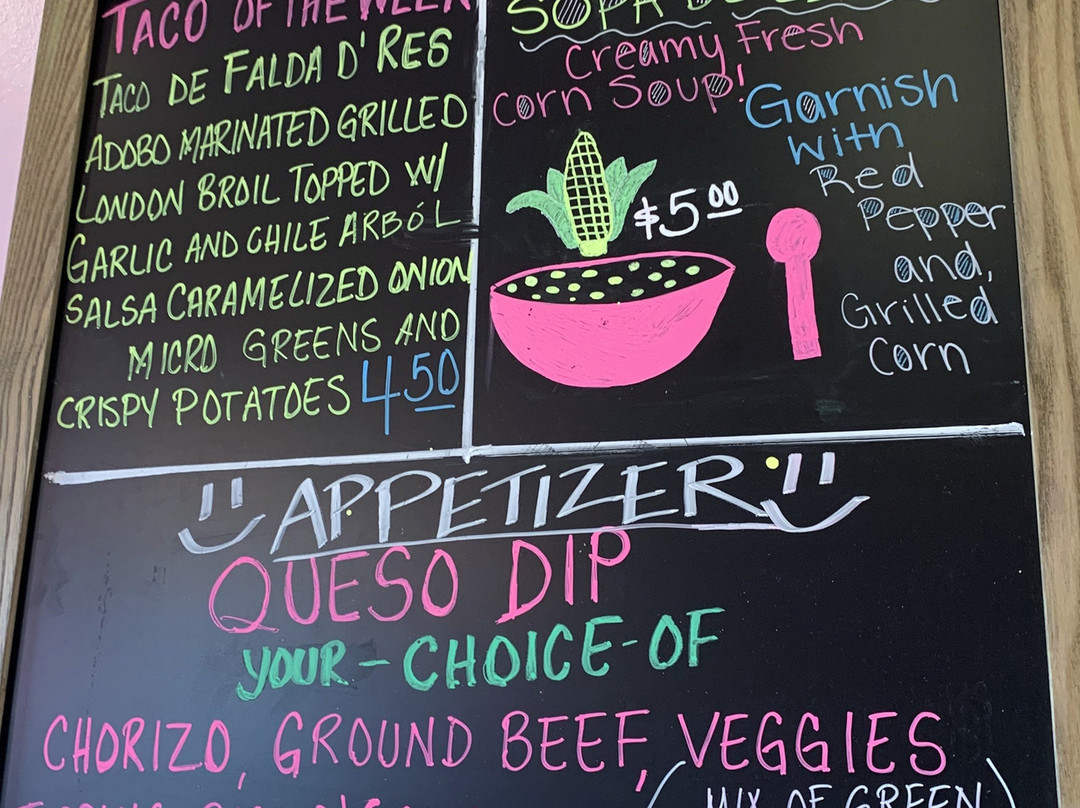 TACO OF THE WEEK
TACO DE FALDA D'RES
ADOBO MARINATED GRILLED
LONDON BROIL TOPPED W/
GARLIC AND CHILE ARBÓL
SALSA CARAMELIZED ONION
MICRO GREENS AND
CRISPY POTATOES 450
SOPA
Creamy Fresh
Corn Soup!
$5.00
Garnish
with
Red
Pepper
and,
Grilled
Corn
APPETIZER
QUESO DIP
YOUR-CHOICE-OF
CHORIZO, GROUND BEEF, VEGGIES
(MIX OF GREEN)